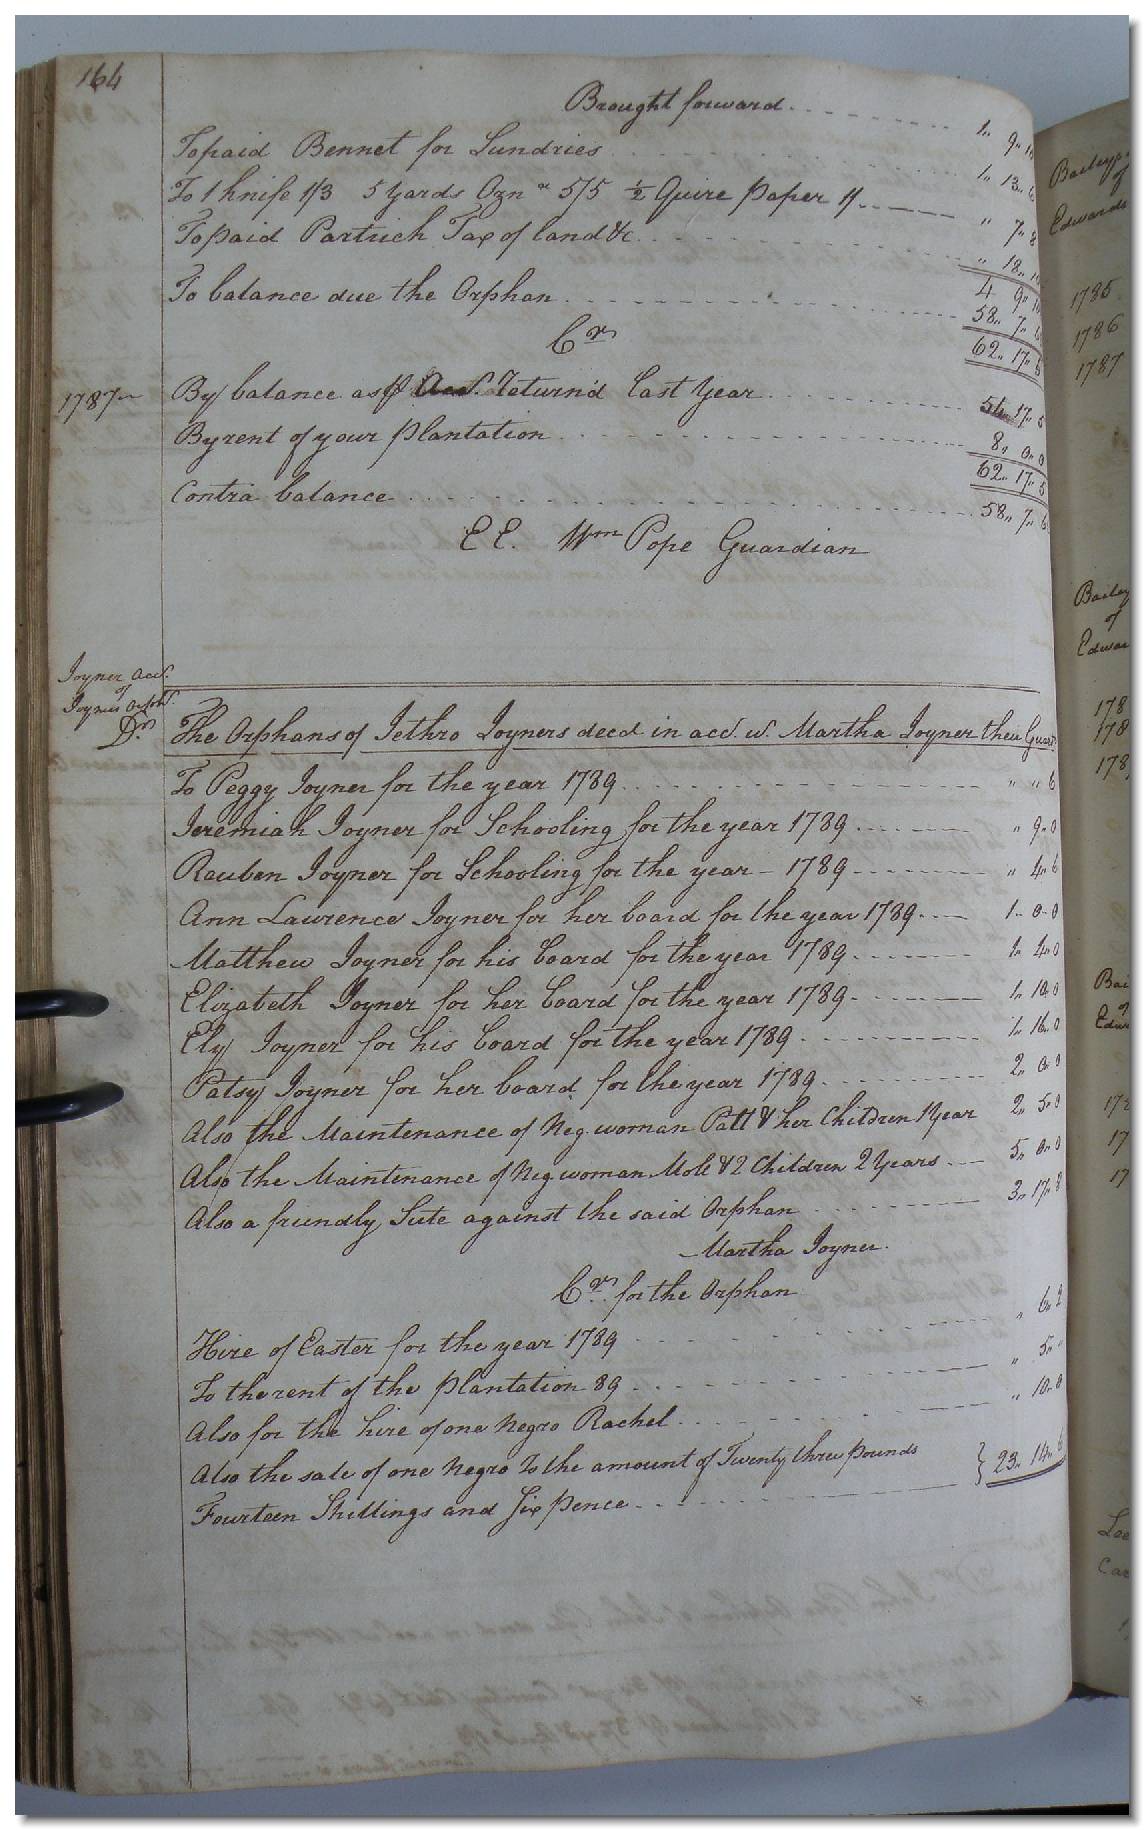 164
Brought forward 1,, 9,, 10
To paid Bennet for Sundries 1,, 13,, 6
To 1 knife 1/3 5 yards Ozn 5/5 ½ Quire paper 1/ ,, 7,, 8
To paid Partrich Tax of land &c ,, 18,, 10
4 9,, 10
To balance due the Orphan 58,, 7,, 6
62,, 17,, 5
Cr
1787 By balance as Acct. Return'd Last Year 54,, 17,, 5
By rent of your plantation 8,, 0,, 0
62,, 17,, 5
Contra balance 58,, 7,, 6
E E. Wm Pope Guardian
Joyner acct.
of
Joyner Orphs.
Dr
The Orphans of Jethro Joyners decd in acct. w. Martha Joyner their Guard
To Peggy Joyner for the year 1789 ,, ,, 6
Jeremiah Joyner for Schooling for the year 1789 ,, 9,, 0
Reuben Joyner for Schooling for the year - 1789 ,, 4,, 6
Ann Lawrence Joyner for her board for the year 1789 1,, 0,, 0
Matthew Joyner for his board for the year 1789 1,, 4,, 0
Elizabeth Joyner for her board for the year 1789 1,, 10,, 0
Ely Joyner for his board for the year 1789 1,, 16,, 0
Patsy Joyner for her board for the year 1789 2,, 0,, 0
Also the Maintenance of Neg. woman Patt & her Children 1 year 2,, 5,, 0
Also the Maintenance of Neg woman Moll & 2 Children 2 Years 5,, 0,, 0
Also a friendly Sute against the said Orphan 3,, 17,, 8
Martha Joyner.
Cr. for the Orphan
Hire of Easter for the year 1789 ,, 6,, 2
To the rent of the plantation 89 ,, 5,, ,,
Also for the hire of one Negro Rachel ,, 10,, 0
Also the sale of one Negro To the amount of Twenty three pounds
Fourteen Shillings and Six pence } 23,, 14,, 6
Edwards
1785
1786
1787
of
178
178
178
of
17
17